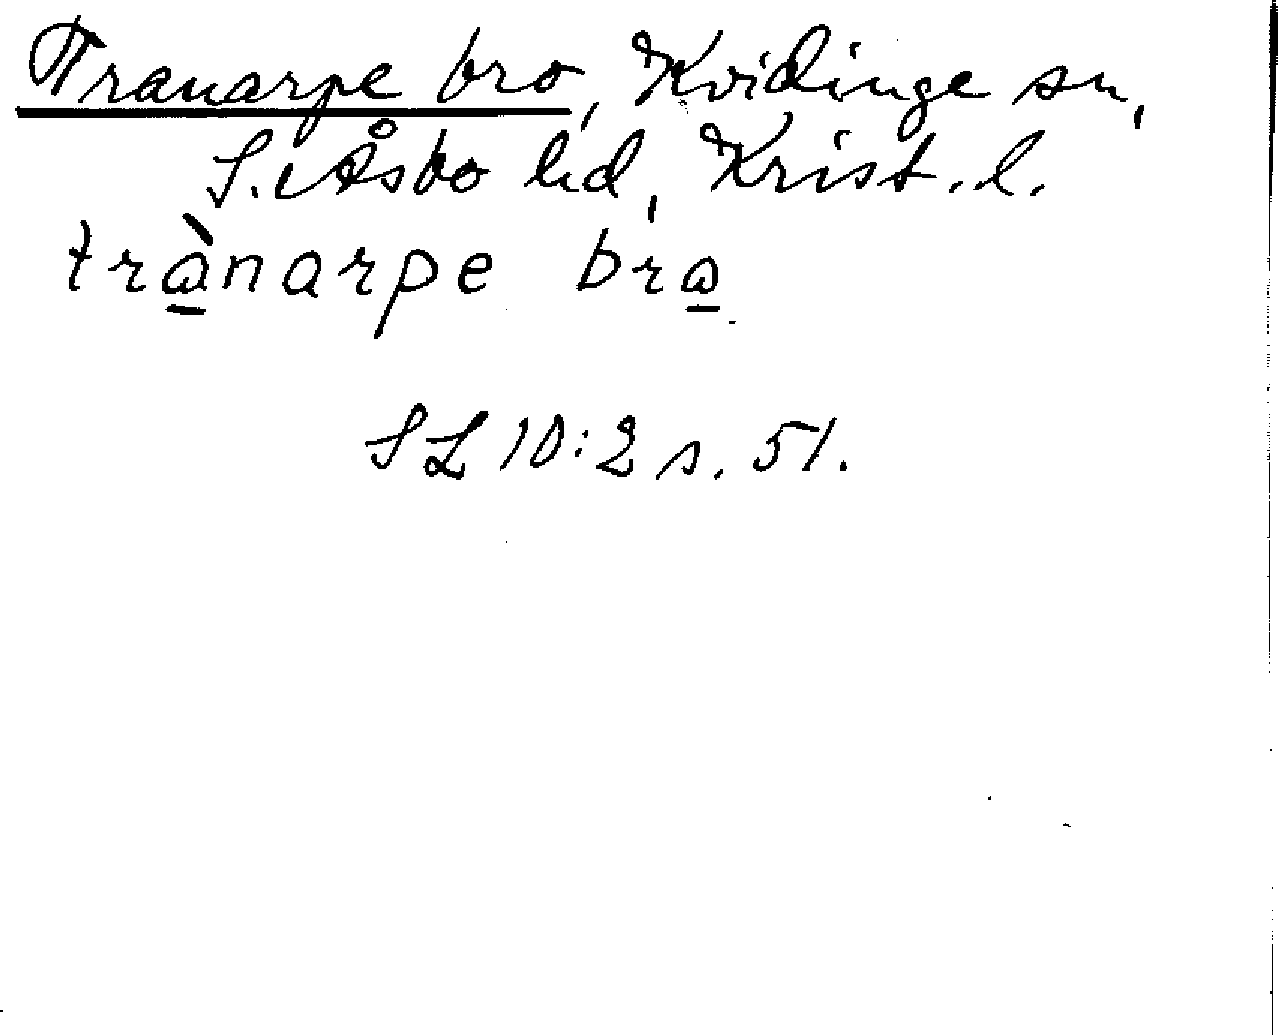 Tranarpe bro, Kvidinge sn,
S. Åsbo hd, Krist. l.
trànarpe bro
SL 10:2 s. 51.